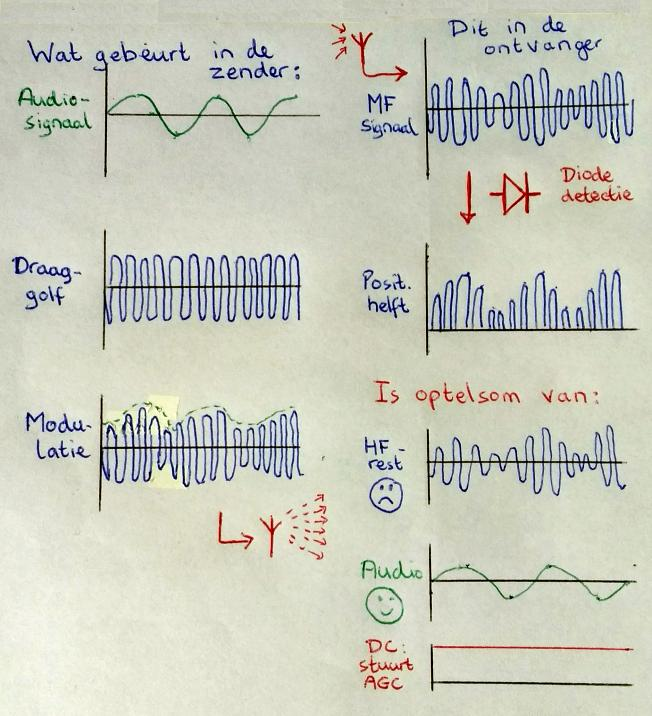 Wat gebeurt in de
zender:
Audio-
signaal
Draag-
golf
Modu-
latie
Dit in de
ontvanger
MF
signaal
Diode
detectie
Posit.
helft
Is optelsom van:
HF-
rest
Audio
DC:
stuurt
AGC